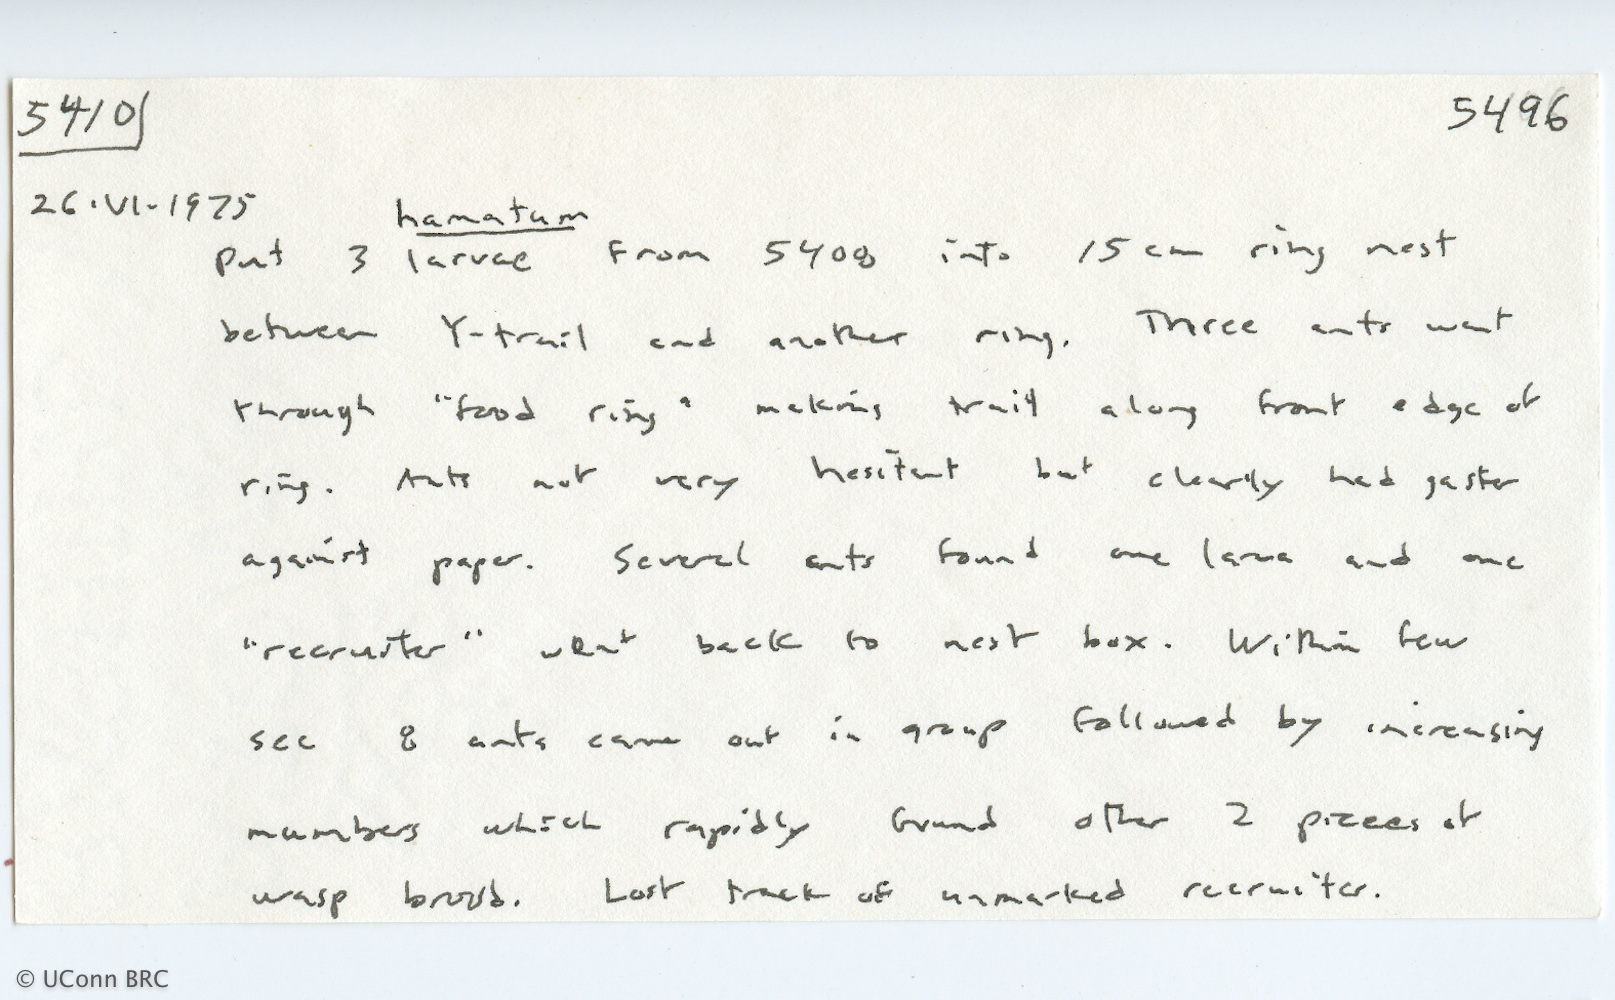 5410
5496
26.VI.1975
hamatum
put 3 larvae from 5408 into 15 cm ring nest
between Y-trail and another ring. Three ants went
through "food ring" making trail along front edge of
ring. Ants not very hesitent but clearly had gaster
against paper. Several ants found one larva and one
"recruiter" went back to nest box. Within few
sec 8 ants came out in group followed by increasing
numbers which rapidly found other 2 pieces of
wasp brood. Lost track of unmarked recruiter.
© UConn BRC